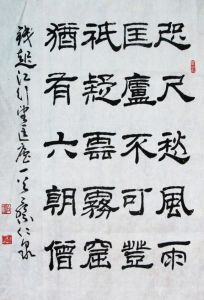 咫尺愁風雨
匡廬不可登
祇疑雲霧窟
猶有六朝僧
錢起江行望匡廬一